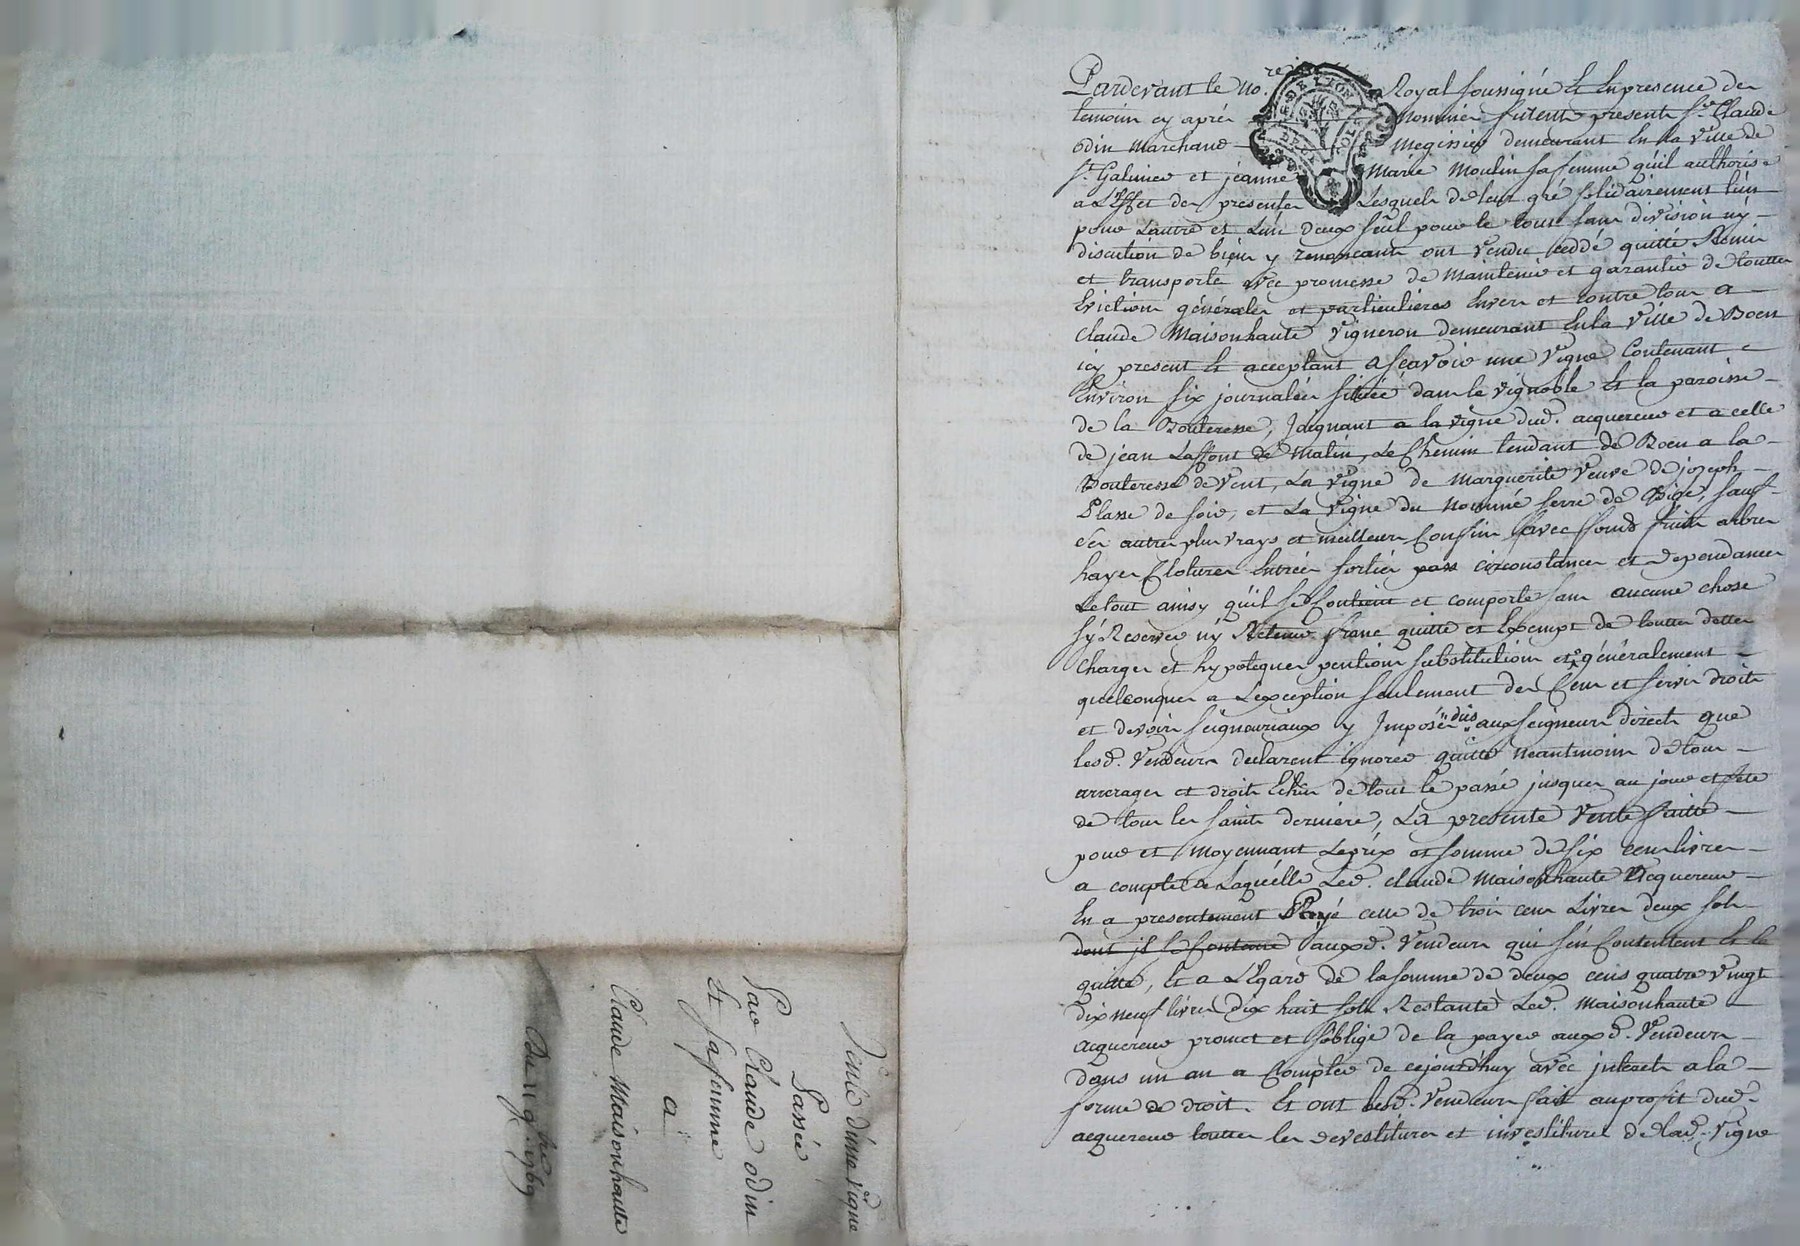 Pardevant le no.re Royal soussigné Et Enpresence des
temoins cy aprés nommés furent presents Sr. Claude
odin marchand megissier demeurant En la Ville de
St. Galmier et jeanne Marie Moulin sa femme qu'il authorise
a L'Effet des presentes Lesquels de leur gré solidairement L'un
pour L'autre et L'un d'eux seul pour le tout sans division ny
discution de biens y renonçants ont vendu ceddé quitté Remis
et transporté avec promesse de Maintenir et garantir de touttes
Evictions générales et particulieres Envers et contre tous a
Claude Maisonhaute Vigneron demeurant En la Ville de Boen
icy present Et acceptant a scavoir une Vigne Contenant
Environ six journalées située dans le vignoble Et la paroisse
de la Bouteresse, joignant a la vigne dud. acquereur et a celle
de jean Laffont de Matin, Le Chemin tendant de Boen a la
Bouteresse de Vent, La Vigne de Marguerite Veuve de joseph
Plasse de soir, et La Vigne du Nommé serre de Bize, sauf
des autres plus vrays et meilleurs Confins avec fonds fruits arbres
hayes Clotures Entrées sorties circonstances et dependances
Le tout ainsy qu'il se Contient et comporte sans aucune chose
s'y Reserver n'y Retenir franc quitte et Exempt de touttes dettes
charges et hypoteques pentions substitutions et généralement
quelconques a L'exception seulement des Cens et servis droits
et devoirs seigneuriaux y Imposés dûs aux seigneurs directs que
lesd. Vendeurs declarent ignorer quitte neantmoins de tous
arrerages et droits Echus de tout le passé jusques au jour et fete
de tous les saints derniere, La presente Vente faitte
pour et Moyennant Le prix et somme de six cens livres
a compte de Laquelle Led. Claude Maisonhaute Acquereur
En a presentement Payé celle de trois cens Livres deux sols
dont il se Contente auxd. Vendeurs qui s'en Contentent Et le
quitte, Et a L'Egard de la somme de deux cens quatre vingt
dix neuf livres dix huit sols Restante Led. Maisonhaute
acquereur promet et s'oblige de la payer auxd. Vendeurs
dans un an a Compter de cejourd'huy avec interets a la
forme de droit. Et ont lesd. Vendeurs fait au profit dud.
acquereur touttes les devestitures et investitures de lad. Vigne
Vente d'une Vigne
Passée
Par Claude odin
Et sa femme
a
Claude Maisonhaute
Du 11 9.bre 1769